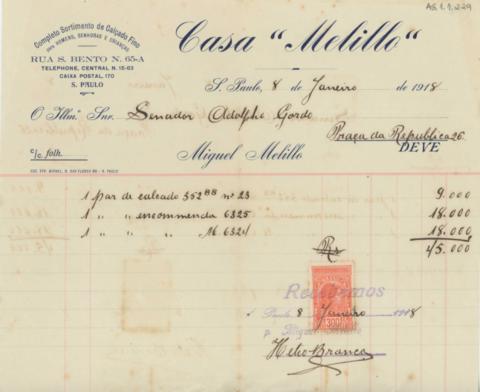 AG.1.1.229
Completo Sortimento de Calçado Fino
PARA HOMENS, SENHORAS E CRIANÇAS
RUA S. BENTO N. 65-A
TELEPHONE, CENTRAL N. 15-63
CAIXA POSTAL, 170
S. PAULO
Casa "Melillo"
S. Paulo, 8 de Janeiro de 1918
O Illmo. Snr. Senador Adolpho Gordo
Praça da Republica 26
c/c. folh.
Miguel Melillo
DEVE
1 par de calcado 552 88 nº 23 9.000
1 " " encommenda 6325 18.000
1 " " " 6324 18.000
Rs 45.000
Recebemos
S. Paulo 8 Janeiro 1918
p. Miguel
300
Helio Branca